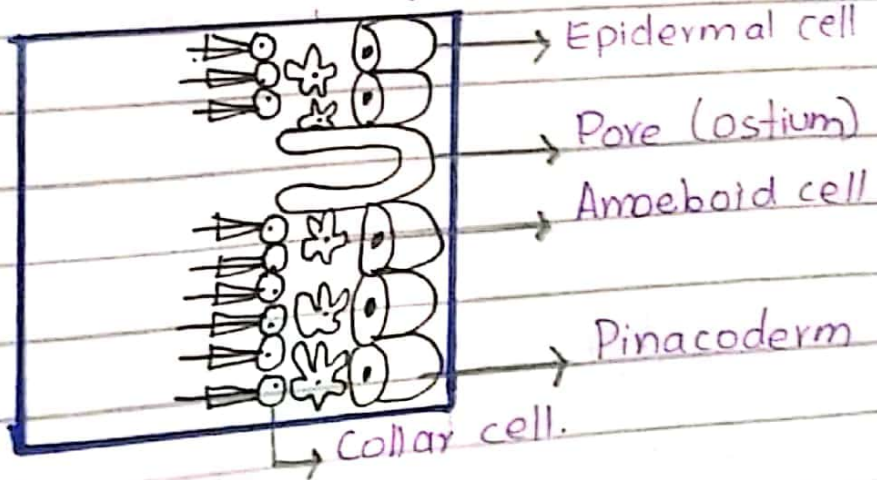 Epidermal cell
Pore (ostium)
Amoeboid cell
Pinacoderm
Collar cell.